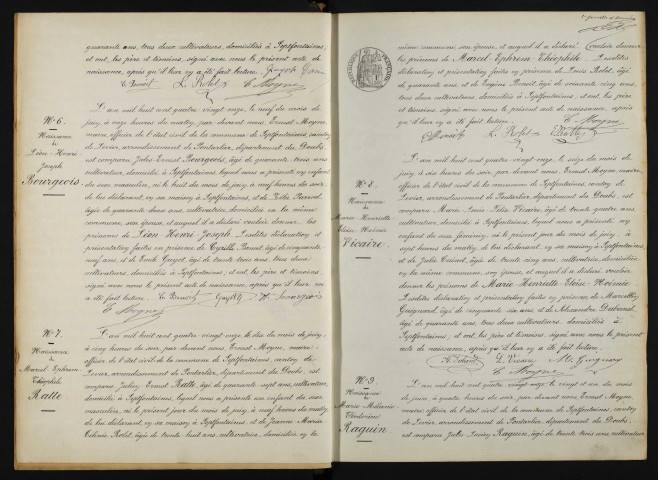 quarante ans, tous deux cultivateurs, domiciliés à Septfontaines;
et ont, les père et témoins, signé avec nous le présent acte de
naissance, après qu'il leur en a été fait lecture.
E. Moyne
N° 6.
Naissance
de
Léon-Henri-
Joseph
Bourgeois.
L'an mil huit cent quatre vingt onze, le neuf du mois de
juin, à onze heures du matin, par devant nous, Ernest Moyne,
maire, officier de l'état civil de la commune de Septfontaines, canton
de Levier, arrondissement de Pontarlier, département du Doubs,
est comparu Jules Ernest Bourgeois, âgé de quarante trois ans,
cultivateur, domicilié à Septfontaines, lequel nous a présenté un enfant
du sexe masculin, né le huit du mois de juin, à neuf heures du soir,
de lui déclarant, en sa maison à Septfontaines, et de
âgée de quarante deux ans, cultivatrice, domiciliée en la même
commune, son épouse, et auquel il a déclaré vouloir donner les
prénoms de Léon Henri Joseph. Lesdites déclaration et
présentation faites en présence de Cyrille Benoit, âgé de cinquante
neuf ans, et de Emile Guyot, âgé de trente trois ans, tous deux
cultivateurs, domiciliés à Septfontaines, et ont, les père et témoins,
signé avec nous le présent acte de naissance, après qu'il leur en
a été fait lecture.
E. Moyne
N° 7.
Naissance
de
Marcel Ephrem
Théophile
Ratte
L'an mil huit cent quatre vingt onze, le dix du mois de juin,
à cinq heures du soir, par devant nous, Ernest Moyne, maire,
officier de l'état civil de la commune de Septfontaines, canton
de Levier, arrondissement de Pontarlier, département du Doubs, est
comparu Ernest Ratte, âgé de quarante sept ans, cultivateur,
domicilié à Septfontaines, lequel nous a présenté un enfant du sexe
masculin, né le présent jour du mois de juin, à neuf heures du matin,
de lui déclarant, en sa maison à Septfontaines, et de Jeanne Marie
Rolot, âgée de trente huit ans, cultivatrice, domiciliée en la
même commune, son épouse, et auquel il a déclaré vouloir donner
les prénoms de Marcel-Ephrem-Théophile. Lesdites
déclaration et présentation faites en présence de Louis Rolot, âgé
de quarante ans et de Eugène Benoit, âgé de quarante cinq ans,
tous deux cultivateurs, domiciliés à Septfontaines, et ont, les père
et témoins, signé avec nous le présent acte de naissance, après
qu'il leur en a été fait lecture.
E. Moyne
L. Rolot
N° 8.
Naissance
de
Marie Henriette
Eloïse Noémie
Vicaire.
L'an mil huit cent quatre vingt onze, le seize du mois de
juin, à six heures du soir, par devant nous, Ernest Moyne, maire,
officier de l'état civil de la commune de Septfontaines, canton de
Levier, arrondissement de Pontarlier, département du Doubs, est
comparu Marie Louis Félix Vicaire, âgé de trente quatre ans,
cultivateur, domicilié à Septfontaines, lequel nous a présenté un
enfant du sexe féminin, né le présent jour du mois de juin, à
sept heures du matin, de lui déclarant, en sa maison à Septfontaines,
et de Julie, âgée de trente cinq ans, cultivatrice, domiciliée
en la même commune, son épouse, et auquel il a déclaré vouloir
donner les prénoms de Marie-Henriette-Eloïse-Noémie.
Lesdites déclaration et présentation faites en présence de Marcellin
Guignard, âgé de cinquante six ans, et de Alexandre
âgé de quarante ans, tous deux cultivateurs, domiciliés à
Septfontaines, et ont, les père et témoins, signé avec nous le présent
acte de naissance, après qu'il leur en a été fait lecture.
L. Vicaire
E. Moyne
N° 9.
Naissance
de
Marie Mélanie
Raguin
L'an mil huit cent quatre vingt onze, le vingt et un du mois
de juin, à quatre heures du soir, par devant nous, Ernest Moyne,
maire, officier de l'état civil de la commune de Septfontaines, canton
de Levier, arrondissement de Pontarlier, département du Doubs,
est comparu Jules Raguin, âgé de trente trois ans, cultivateur